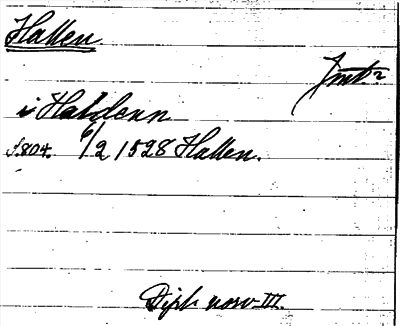 Hallen.
Jmt.
i Haldenn
S. 804. 6/2 1528 Hallen.
Dipl. norv. III.